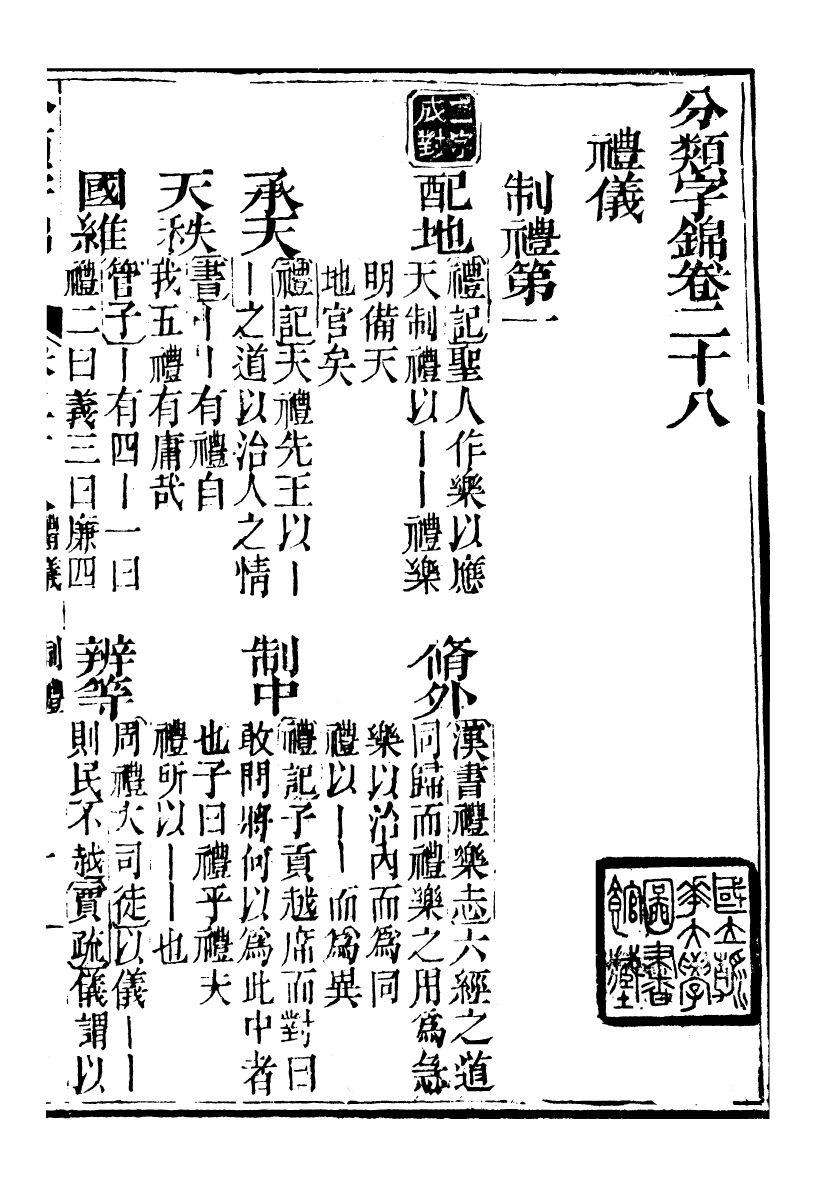 分類字錦卷二十八
禮儀
制禮第一
二字成對
配地
禮記聖人作樂以應
天制禮以丨丨禮樂
明備天
地官矣
脩外
漢書禮樂志六經之道
同歸而禮樂之用爲急
樂以治內而爲同
禮以丨丨而爲異
承天
禮記夫禮先王以丨
丨之道以治人之情
制中
禮記子貢越席而對曰
敢問將何以爲此中者
也子曰禮乎禮夫
禮所以丨丨也
天秩
書丨丨有禮自
我五禮有庸哉
國維
管子丨有四丨一曰
禮二曰義三曰廉四
辨等
周禮大司徒以儀丨丨
則民不越賈疏儀謂以
禮儀
制禮
一
國立清華大學圖書館藏